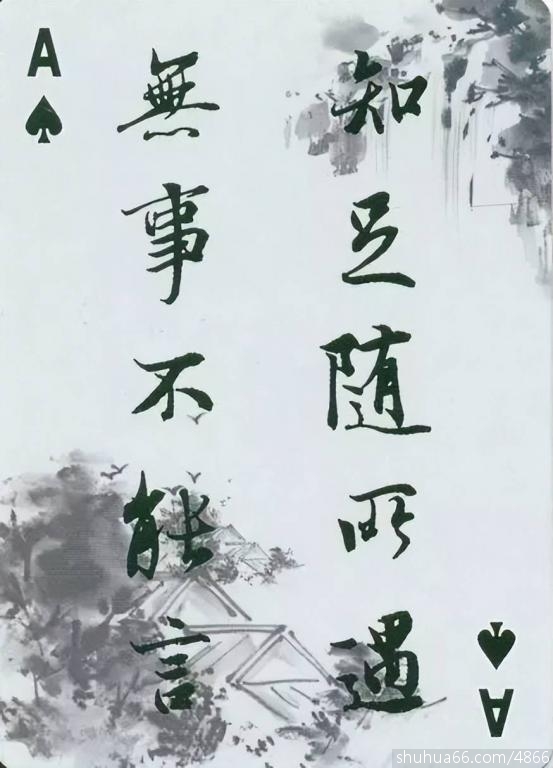 A
知足随所遇
無事不能言
A
shuhua66.com/4866